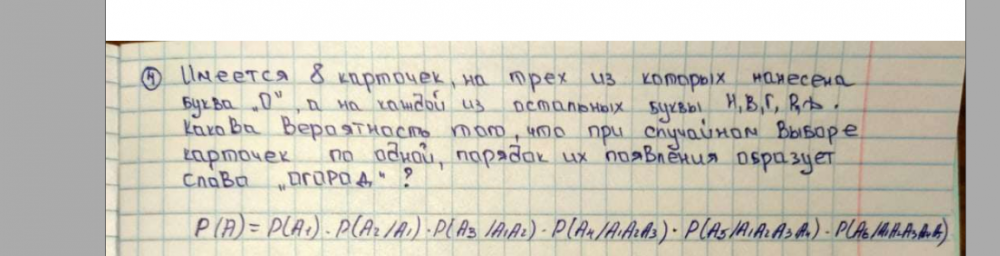 ④ Имеется 8 карточек, на трех из которых нанесена
буква "О", а на каждой из остальных буквы Н, В, Г, Р, Д.
Какова вероятность того, что при случайном выборе
карточек по одной, порядок их появления образует
слово "ОГОРОД"?
P(A) = P(A₁) · P(A₂/A₁) · P(A₃/A₁A₂) · P(A₄/A₁A₂A₃) · P(A₅/A₁A₂A₃A₄) · P(A₆/A₁A₂A₃A₄A₅)